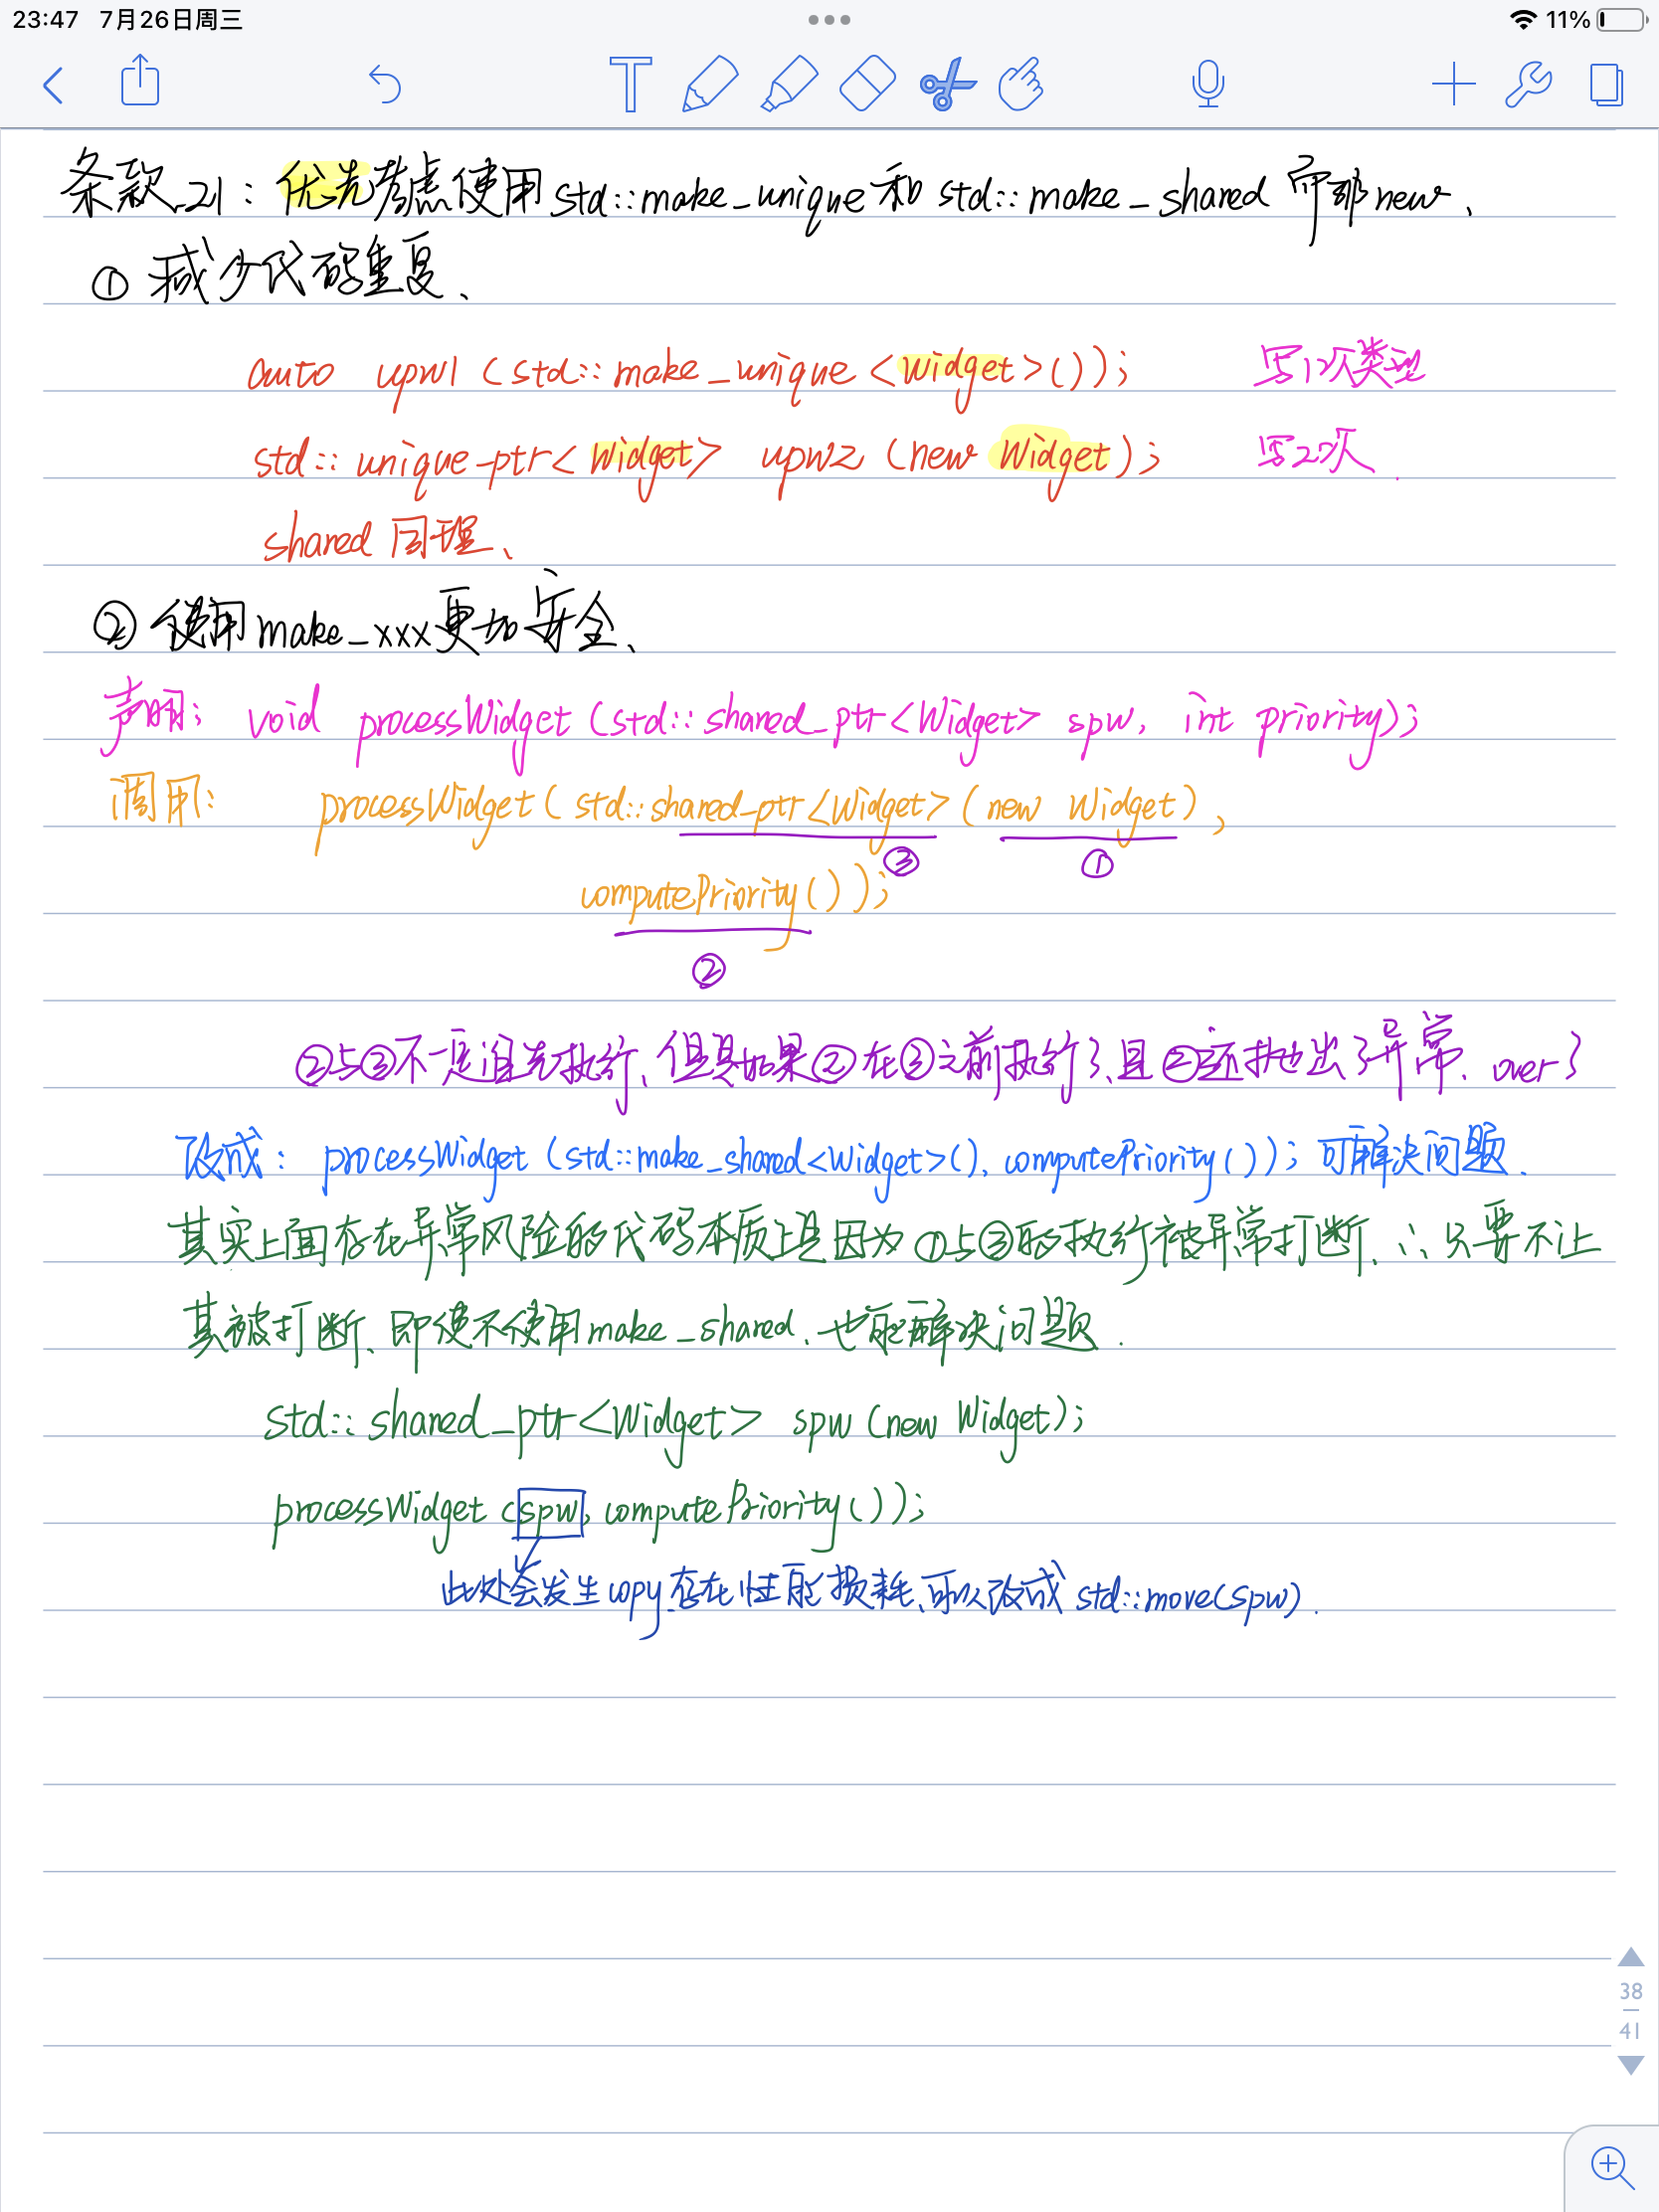 23:47 7月26日周三
11%
条款21：优先考虑使用std::make_unique和std::make_shared而非new、
① 减少代码重复、
auto upw1 (std::make_unique<Widget>()); 写1次类型
std::unique_ptr<Widget> upw2 (new Widget); 写2次.
shared 同理、
② 使用make_xxx更加安全、
声明: void processWidget (std::shared_ptr<Widget> spw, int priority);
调用: processWidget( std::shared_ptr<Widget>(new Widget),
③ ①
computePriority());
②
②与③不一定谁先执行、但是如果②在③之前执行了、且②还抛出了异常. over了
改成: processWidget (std::make_shared<Widget>(), computePriority()); 可解决问题.
其实上面存在异常风险的代码本质上是因为①与③的执行被异常打断、∴只要不让
其被打断、即使不使用make_shared、也能解决问题.
std::shared_ptr<Widget> spw (new Widget);
processWidget (spw, computePriority());
此处会发生copy存在性能损耗、可以改成 std::move(spw).
38
41